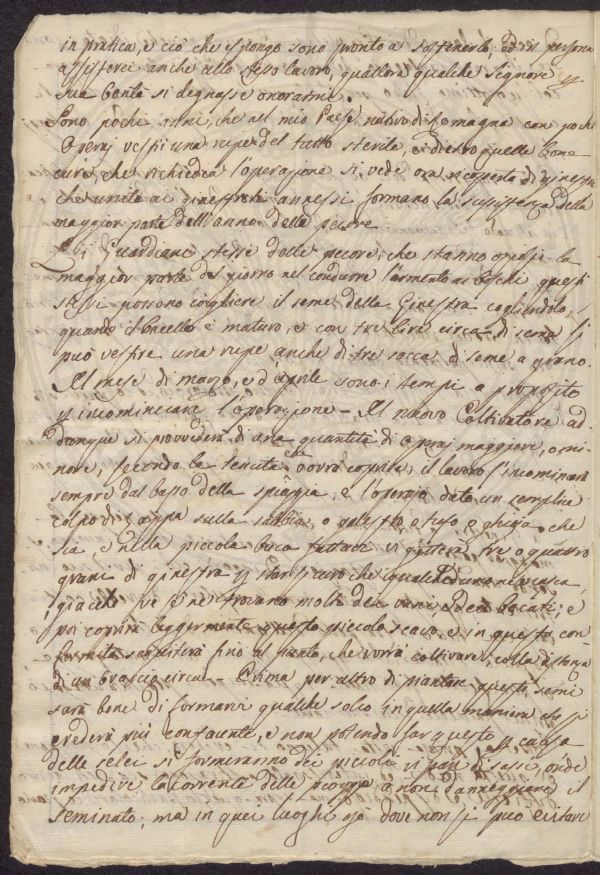 in pratica, e ciò che espongo sono pronto a sostenerlo ed in persona
assisterci anche allo stesso lavoro, quallora qualche Signore p
sua bontà si degnasse onorarmi.
Sono pochi anni, che nel mio Paese nativo di Romagna con pochi
Operaj vestii una rupe del tutto sterile, e dietro quelle buone
cure, che richiedea l'operazione si vede ora ricoperta di ginestra
che unita ai ginestreti annessi formano la sussistenza della
maggior parte dell'anno delle pecore
Li Guardiani stessi delle pecore, che stanno oziosi la
maggior parte del giorno nel condurre l'armento ai boschi questi
stessi possono cogliere il seme della Ginestra cogliendolo,
quando il bacello è maturo, e con tre lire circa di seme si
può vestire una rupe anche di tre sacca di seme a grano.
Il mese di marzo, e d'aprile sono i tempi a proposito
p incominciare l'operazione - Il nuovo Coltivatore ad-
donque si provvederà di una quantità di operaj maggiore, o mi-
nore, secondo la tenuta che dovrà coprirla; il lavoro s'incomincerà
sempre dal basso della spiaggia, e l'operajo dato un semplice
colpo di zappa sulla sabbia, o galestro, o tufo, e ghiaja che
sia, e nella piccola buca fattavi vi getterà tre o quattro
grani di ginestra p star sicuro che qualcheduna ne nasca,
giacchè ve se ne trovano molti dei vani, e dei bacati; e
poi coprirà leggermente questo piccolo scavo e in questa con-
formità seguiterà fino al punto, che vorrà coltivare, colla distanza
di un braccio circa - Prima per altro di piantare questi semi
sarà bene di formarvi qualche solco in quella maniera che si
crederà più confacente, e non potendo far questo p causa
delle selci si formeranno dei piccoli ripari di sassi, onde
impedire la corrente delle pioggie a non danneggiare il
seminato; ma in quei luoghi poi dove non si può evitare